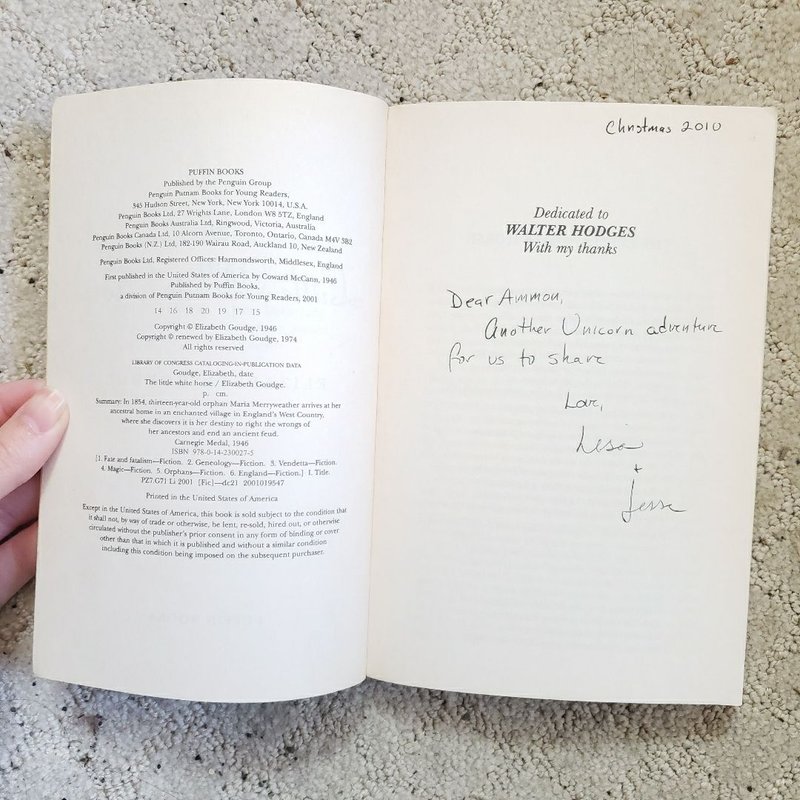 PUFFIN BOOKS
Published by the Penguin Group
Penguin Putnam Books for Young Readers,
345 Hudson Street, New York, New York 10014, U.S.A.
Penguin Books Ltd, 27 Wrights Lane, London W8 5TZ, England
Penguin Books Australia Ltd, Ringwood, Victoria, Australia
Penguin Books Canada Ltd, 10 Alcorn Avenue, Toronto, Ontario, Canada M4V 3B2
Penguin Books (N.Z.) Ltd, 182-190 Wairau Road, Auckland 10, New Zealand
Penguin Books Ltd, Registered Offices: Harmondsworth, Middlesex, England
First published in the United States of America by Coward McCann, 1946
Published by Puffin Books,
a division of Penguin Putnam Books for Young Readers, 2001
14 16 18 20 19 17 15
Copyright © Elizabeth Goudge, 1946
Copyright © renewed by Elizabeth Goudge, 1974
All rights reserved
LIBRARY OF CONGRESS CATALOGING-IN-PUBLICATION DATA
Goudge, Elizabeth, date
The little white horse / Elizabeth Goudge.
p. cm.
Summary: In 1854, thirteen-year-old orphan Maria Merryweather arrives at her
ancestral home in an enchanted village in England's West Country,
where she discovers it is her destiny to right the wrongs of
her ancestors and end an ancient feud.
Carnegie Medal, 1946
ISBN 978-0-14-230027-5
[1. Fate and fatalism—Fiction. 2. Geneology—Fiction. 3. Vendetta—Fiction.
4. Magic—Fiction. 5. Orphans—Fiction. 6. England—Fiction.] I. Title.
PZ7.G71 Li 2001 [Fic]—dc21 2001019547
Printed in the United States of America
Except in the United States of America, this book is sold subject to the condition that
it shall not, by way of trade or otherwise, be lent, re-sold, hired out, or otherwise
circulated without the publisher's prior consent in any form of binding or cover
other than that in which it is published and without a similar condition
including this condition being imposed on the subsequent purchaser.
Christmas 2010
Dedicated to
WALTER HODGES
With my thanks
Dear Ammon,
Another Unicorn adventure
for us to share
Love,
Lesa
+
Jesse